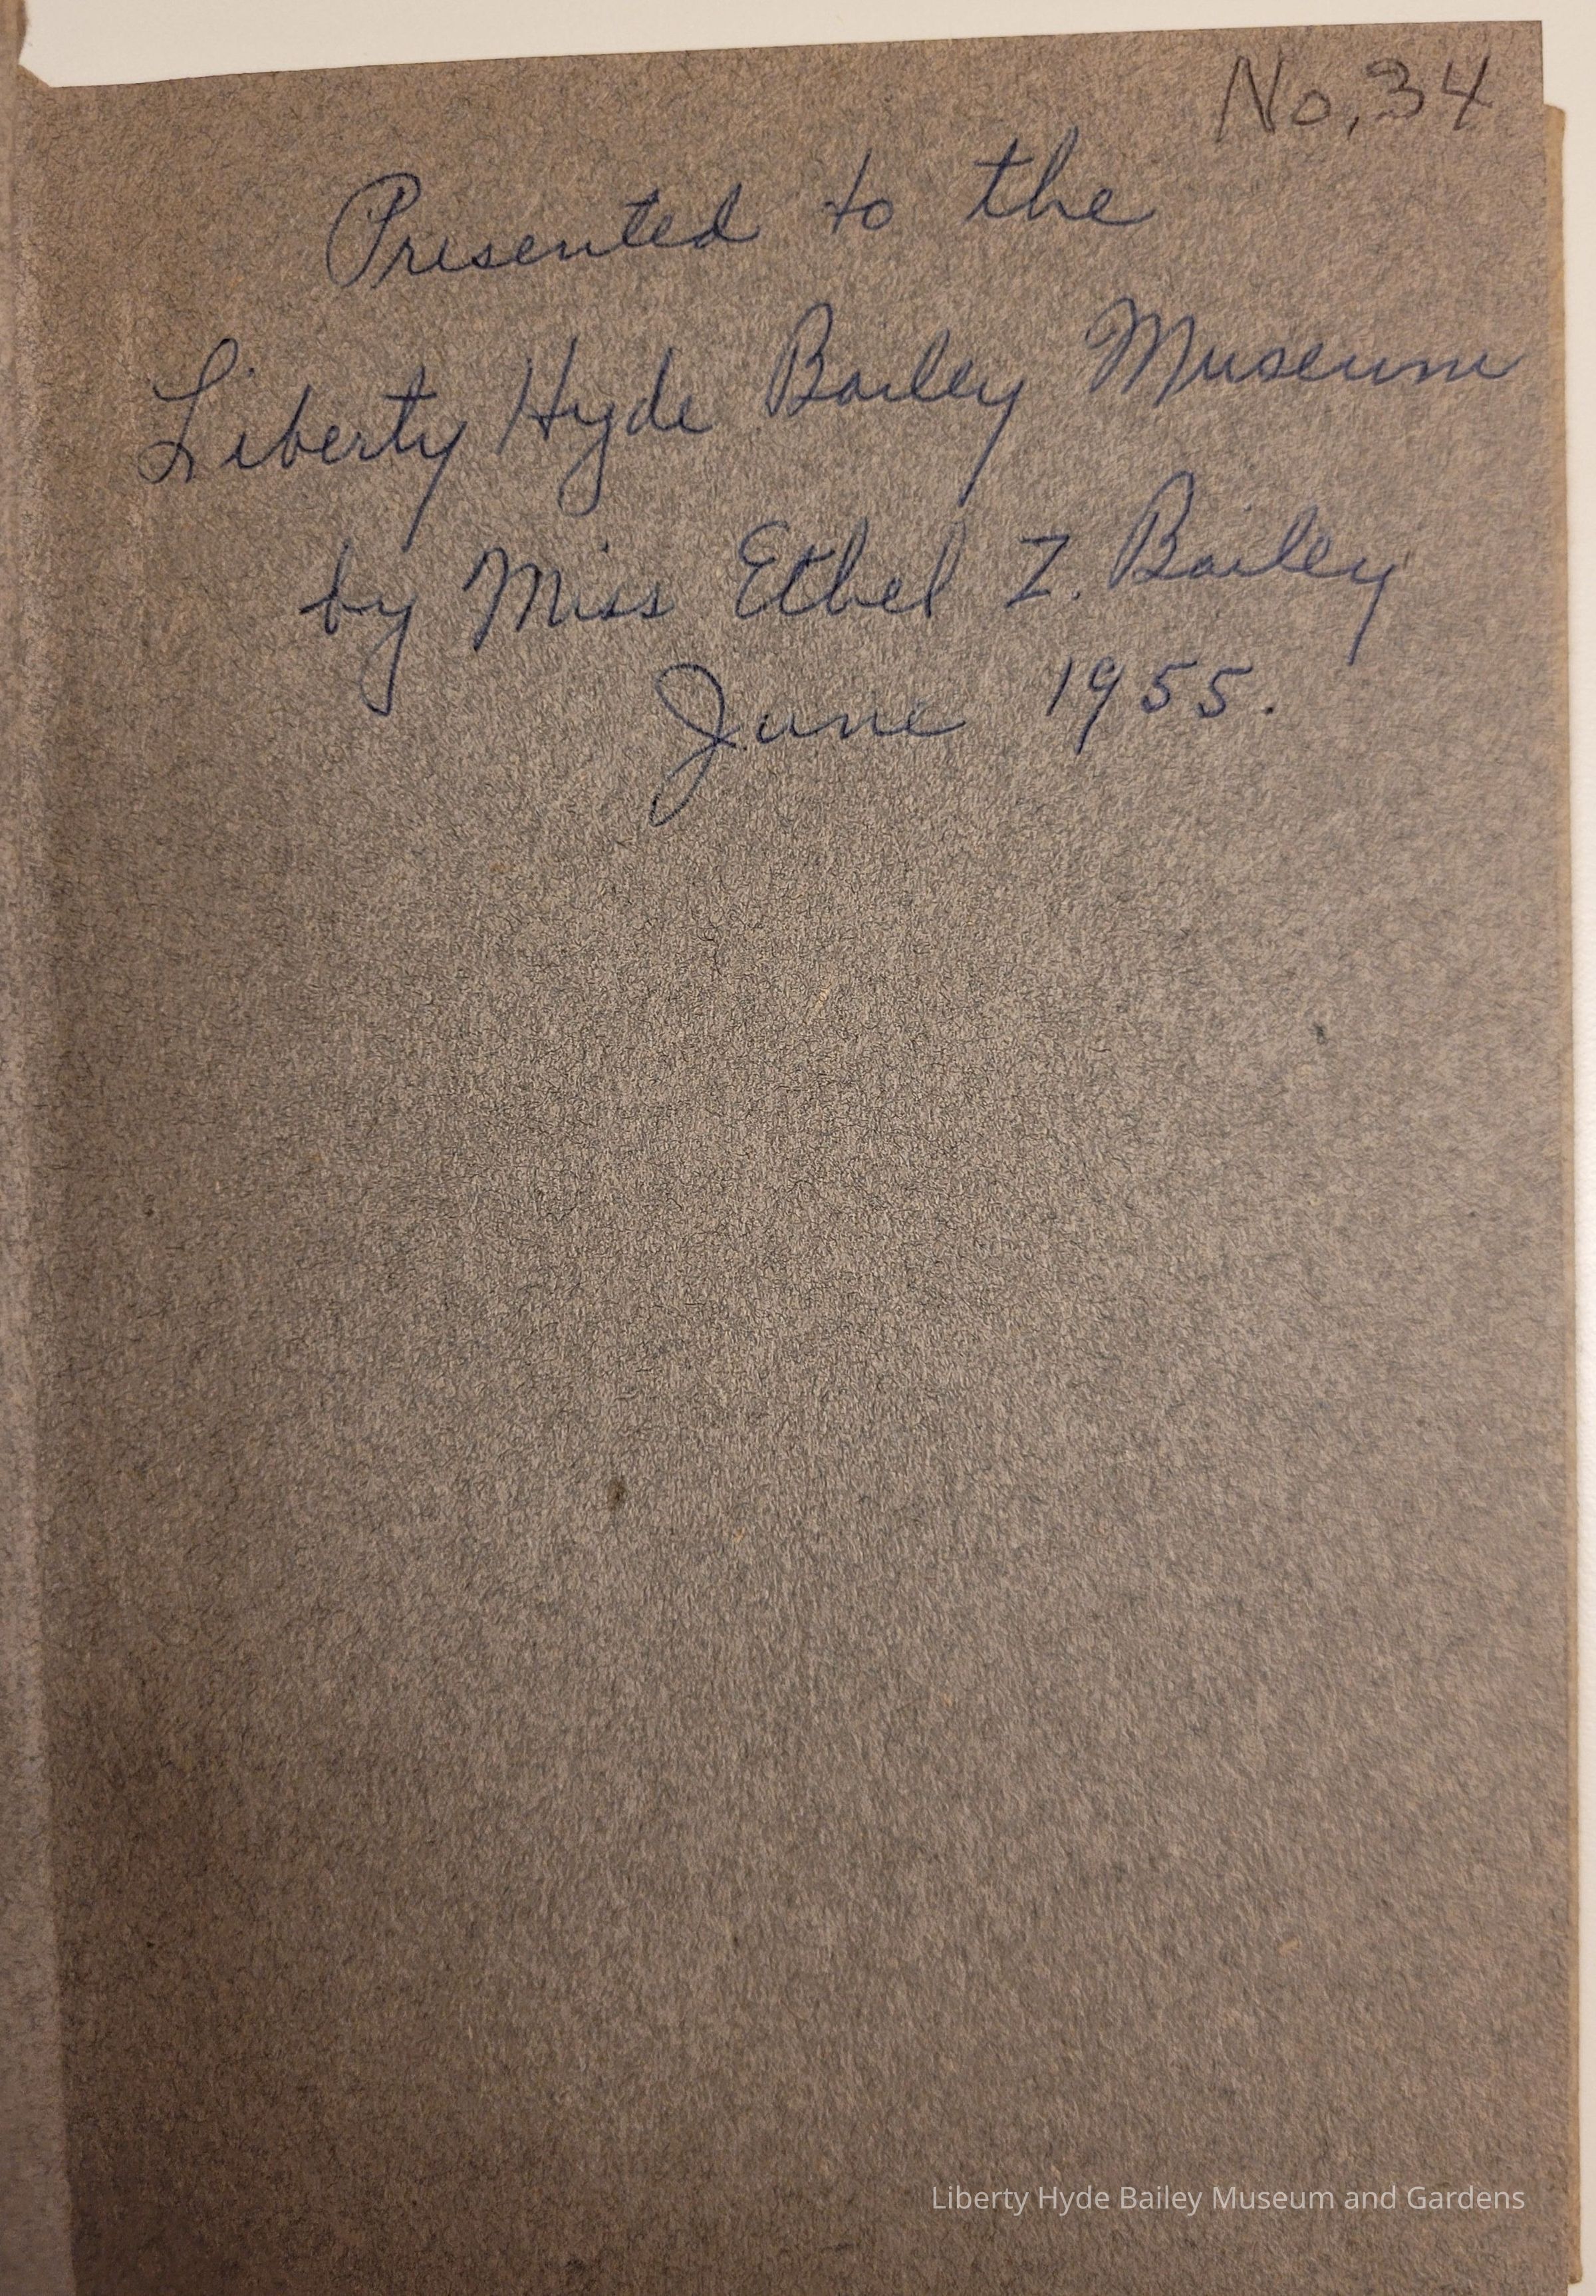 No. 34
Presented to the
Liberty Hyde Bailey Museum
by Miss Ethel Z. Bailey
June 1955.
Liberty Hyde Bailey Museum and Gardens